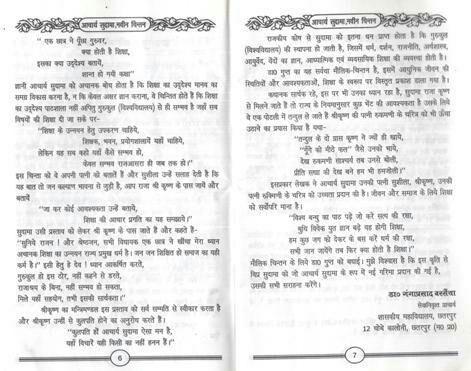 आचार्य सुदामा, नवीन चिन्तन
" एक छात्र ने पूँछा गुरुवर,
क्या होती है शिक्षा,
इसका क्या उद्देश्य बतायें,
शान्त हो गयी कक्षा"
ज्ञानी आचार्य सुदामा को अचानक बोध होता है कि शिक्षा का उद्देश्य मानव का
समग्र विकास करना है, न कि केवल अक्षर ज्ञान कराना, वे चिन्तित होते हैं कि शिक्षा
का उद्देश्य पाठशाला नहीं अपितु गुरुकुल (विश्वविद्यालय) से ही सम्भव है जहाँ सब
विषयों की शिक्षा दी जा सके पर-
"शिक्षा के उन्नयन हेतु उपकरण चाहिये,
शिक्षक, भवन, प्रयोगशालायें यहाँ चाहिये,
लेकिन यह सब कहो यहाँ कैसे सम्भव हो,
केवल सम्भव राजआसरा ही जब तक हो।"
इस चिन्ता को वे अपनी पत्नी को बताते हैं और सुशीला उन्हें सलाह देती है कि
यह बात तो जन कल्याण भावना से जुड़ी है, आप राजा श्री कृष्ण के पास जायें और
बतायें
"जा कर कोई आवश्यकता उन्हें बताये,
शिक्षा की आधार प्रगति का यह समझाये।"
सुदामा उसी प्रस्ताव को लेकर श्री कृष्ण के पास जाते हैं और कहते है-
"सुनिये राजन ! और श्रेष्ठजन, सभी विधायक एक छात्र ने खींचा मेरा ध्यान
अचानक शिक्षा का उन्नयन राज्य प्रमुख धर्म है। जन जन शिक्षित हो समाज का यही
कर्म है।" इसी हेतु हे देव ! ध्यान आकर्षित करते,
गुरुकुल हो इस ठौर, नहीं कहने से डरते,
राजाश्रय के बिना, नहीं सम्भव हो सकता,
मिले यहाँ सहयोग, तभी इसकी सार्थकता।"
श्रीकृष्ण का मन्त्रिमण्डल इस प्रस्ताव को सर्व सम्मति से स्वीकार करता है
और श्रीकृष्ण उन्हीं से कुलपति होने का अनुरोध करते हैं।
"कुलपति हों आचार्य सुदामा ऐसा मन है,
यहाँ विचारें यही किसी का नहीं हनन हैं।"
6
आचार्य सुदामा, नवीन चिन्तन
राजकीय कोष से सुदामा को इतना धन प्राप्त होता है कि गुरुकुल
(विश्वविद्यालय) की स्थापना हो जाती है, जिसमें धर्म, दर्शन, राजनीति, अर्थशास्त्र,
आयुर्वेद, वेदों का ज्ञान, आध्यात्मिक एवं व्यवसायिक शिक्षा की व्यवस्था होती है।
डा० गुप्त का यह सर्वथा मौलिक-चिन्तन है, इसमें आधुनिक जीवन की
स्थितियों और आवश्यकताओं, शिक्षा के स्वरूप पर विस्तृत प्रकाश डाला गया है।
कथानक सार्थक रहे, इस पर भी उनका ध्यान रहा है, सुदामा राजा कृष्ण
से मिलने जाते हैं तो राज्य के नियमानुसार कुछ भेंट की आवश्यकता है उसके लिये
वे एक पोटली में तन्दुल ले जाते हैं श्रीकृष्ण की पत्नी रुकमणी के चरित्र को भी ऊँचा
उठाने का प्रयास किया है यथा-
"तन्दुल के दो ग्रास कृष्ण ने ज्यों ही खाये,
"मैंने की मीठे फल" जैसे उनको भाये,
देख रुकमणी साश्चर्य तब उनसे बोली,
प्रीति सखा की देख बने हम भी हमजोली।"
इसप्रकार लेखक ने आचार्य सुदामा उनकी पत्नी सुशीला, श्रीकृष्ण, उनकी
पत्नी रुकमिनी के चरित्र को उच्चता प्रदान की है। जीवन और समाज के लिये शिक्षा
को सर्वोपरि माना है।
"विश्व बन्धु का पाठ पढ़े जो करे सत्य की रक्षा,
बुधि विवेक युत ज्ञान बढ़े यह होगी शिक्षा,
हम कुछ जग को देकर के बस करें धर्म की रक्षा,
सभी जान जायेंगे तब फिर क्या होती है शिक्षा।"
मौलिक चिन्तन के लिये डा० गुप्त को बधाई। मुझे विश्वास है कि इस कृति से
विप्र सुदामा को जो आचार्य सुदामा के रूप में नई गरिमा प्रदान की गई है,
उसकी सभी सराहना करेंगे।
डा० गंगाप्रसाद बरसैंया
सेवानिवृत्त प्राचार्य
शासकीय महाविद्यालय, छतरपुर
12 चोबे कालोनी, छतरपुर (म० प्र०)
7